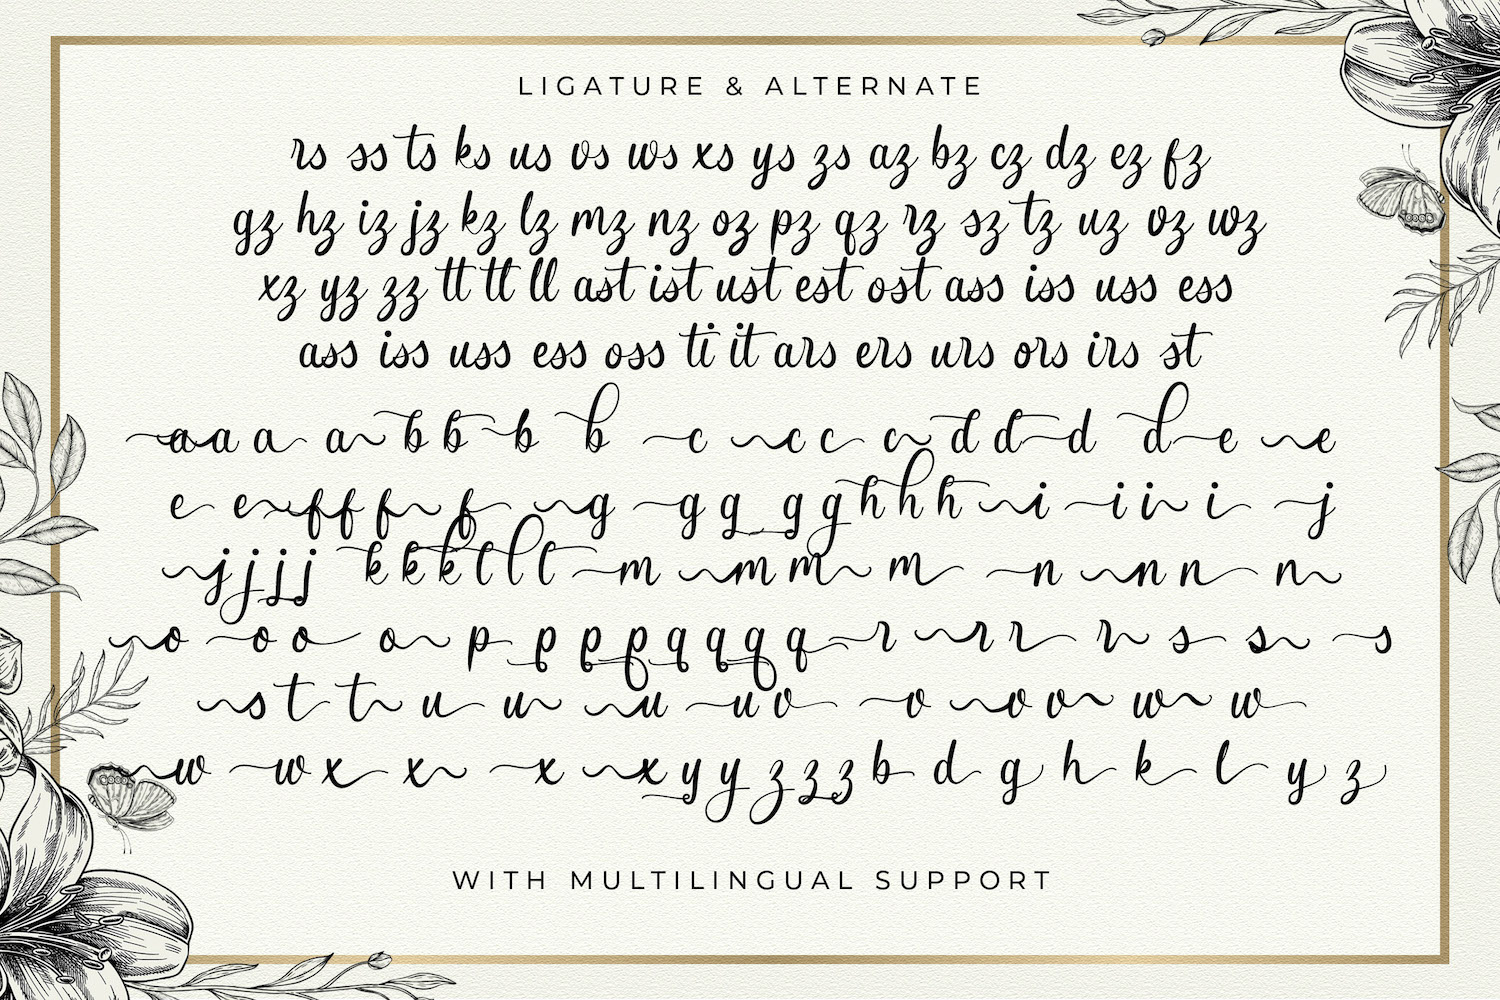 LIGATURE & ALTERNATE
rs ss ts ks us os ws xs ys zs az bz cz dz ez fz
gz hz iz jz kz lz mz nz oz pz qz rz sz tz uz vz wz
xz yz zz tt tl ll ast ist ust est ost ass iss uss ess
ass iss uss ess oss ti it ars ers urs ors irs st
a a a a b b b b c c c c d d d d e e
e e f f f f g g g g g h h h i i i i j
j j j j k k k l l l m m m m n n n n
o o o o p p p p q q q q r r r r s s s
s t t u u u u v v v v w w
w w x x x x y y z z z b d g h k l y z
WITH MULTILINGUAL SUPPORT